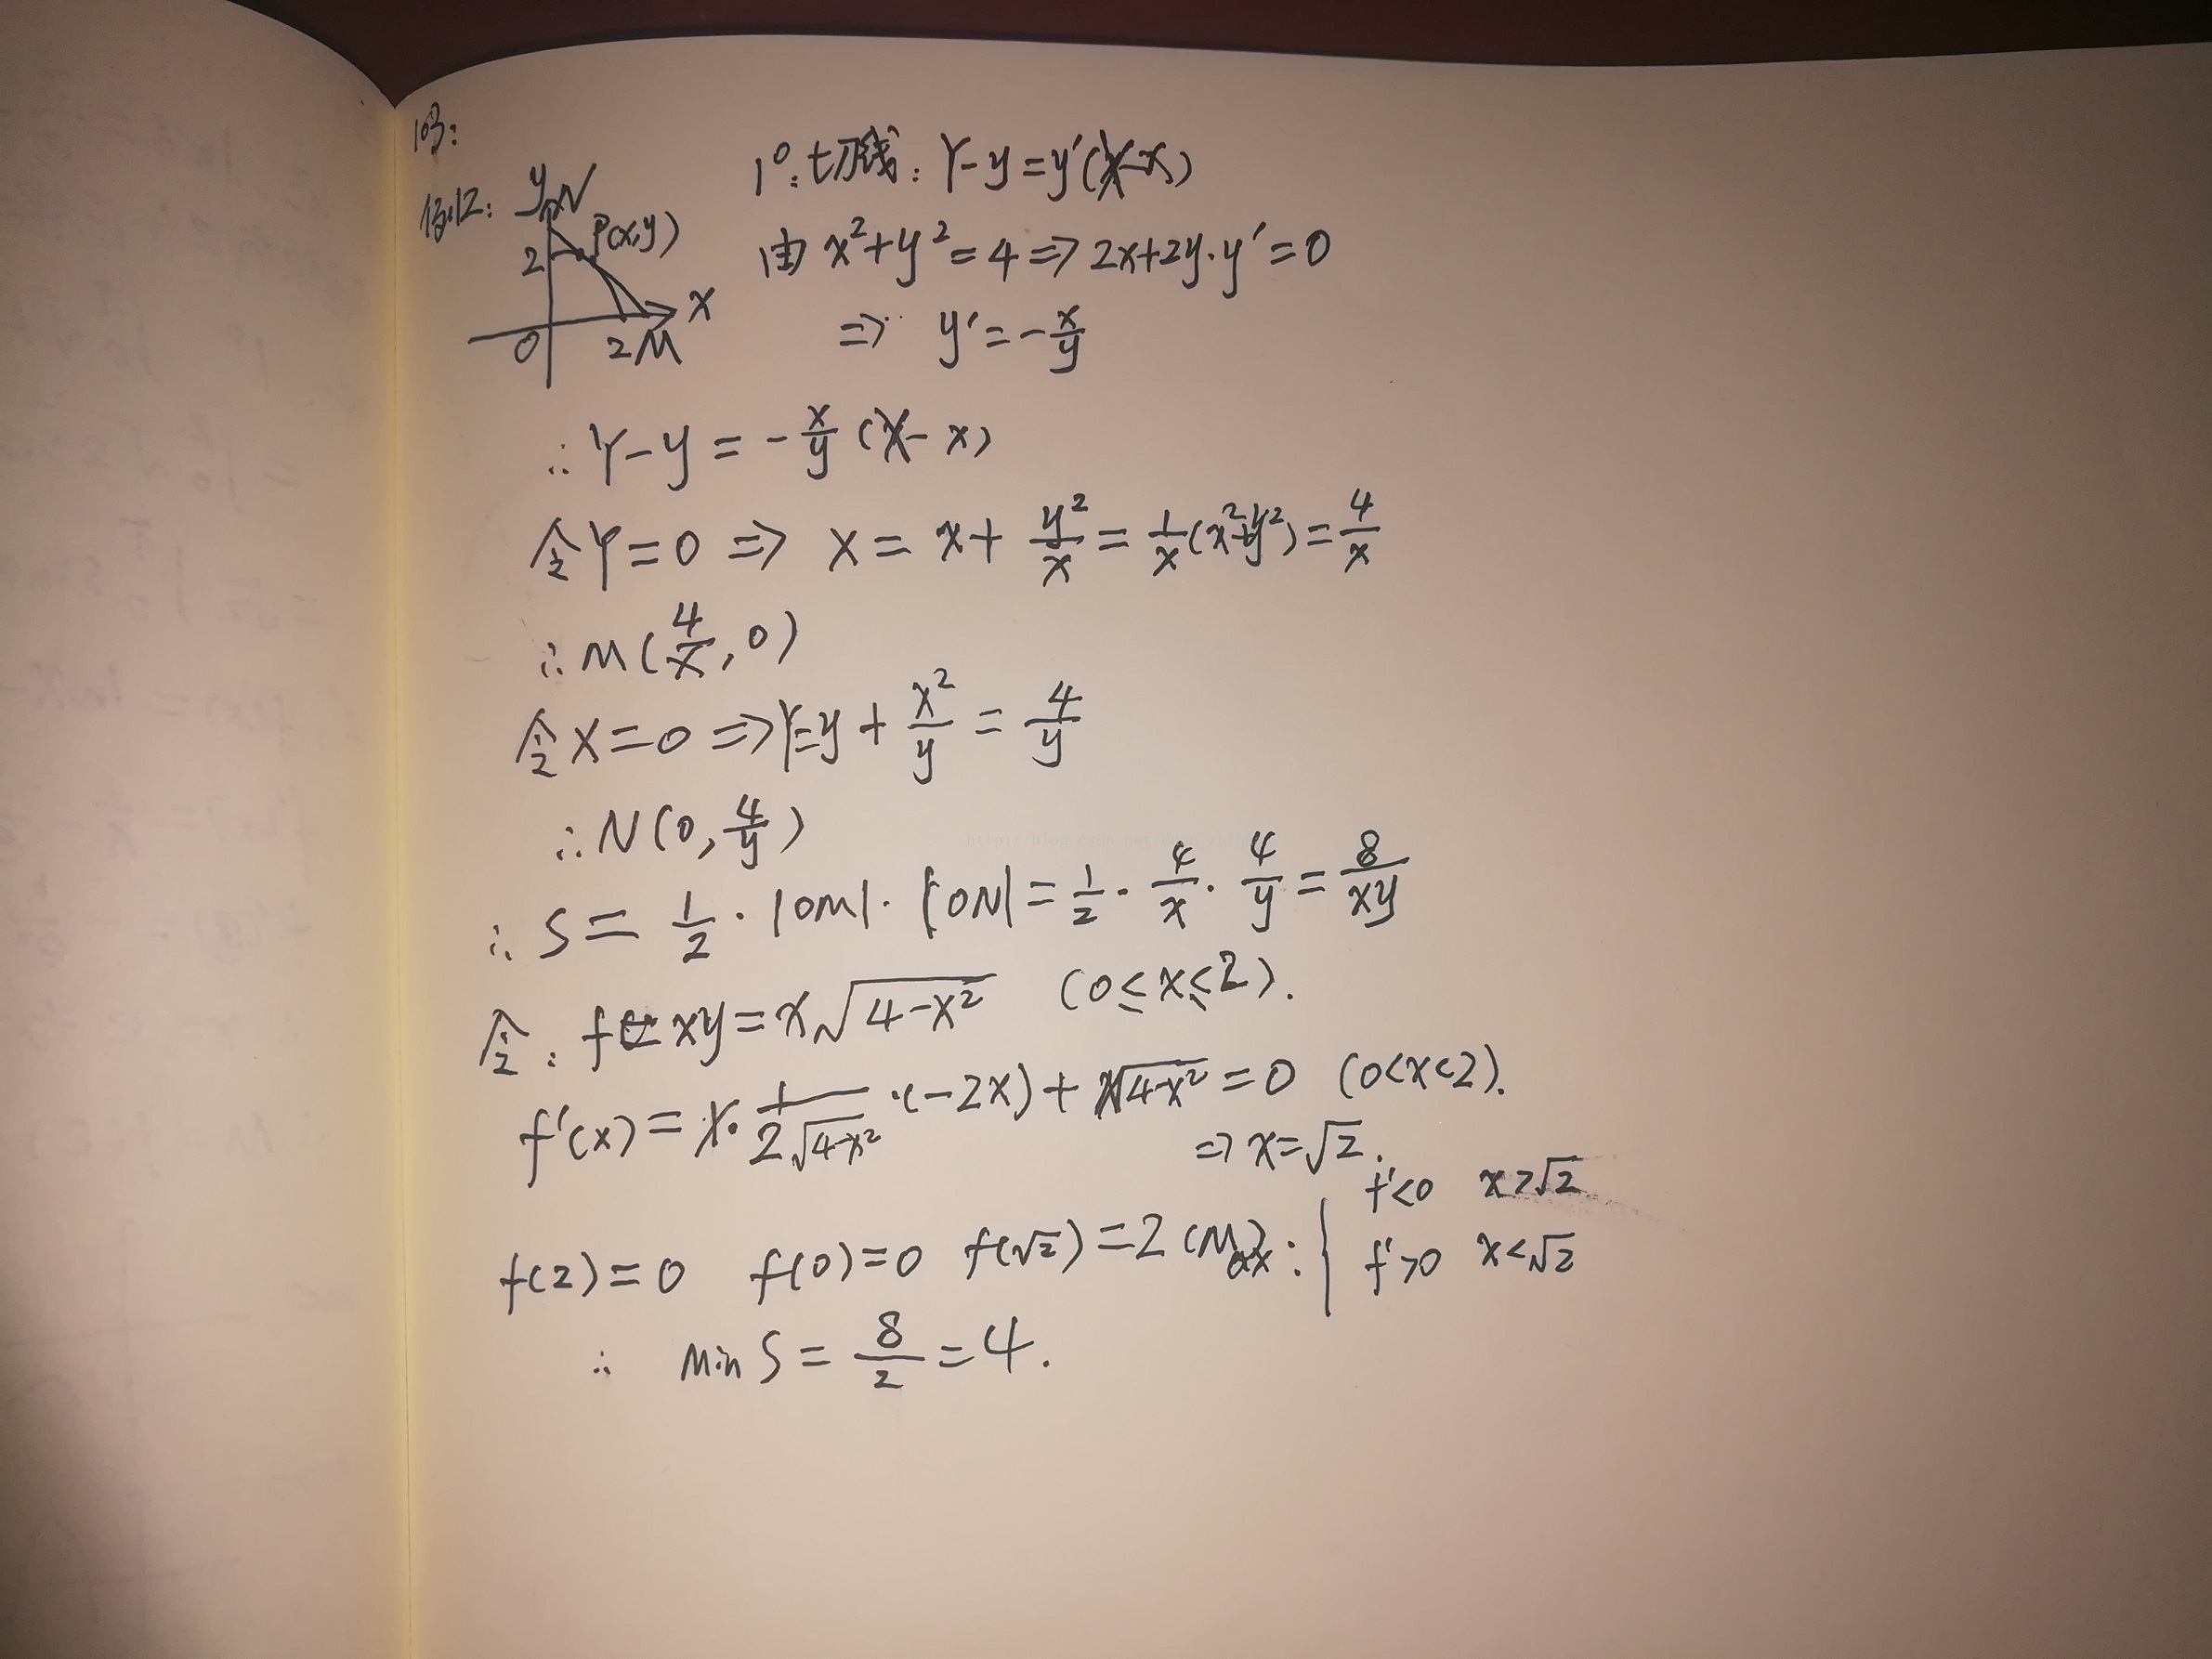 103:
例12:
y N
P(x,y)
2
x
0 2 M
1°: 切线: Y-y=y'(X-x)
由 x²+y²=4 => 2x+2y·y'=0
=> y'=-x/y
∴ Y-y = -x/y (X-x)
令Y=0 => X = x+ y²/x = 1/x(x²+y²) = 4/x
∴ M(4/x, 0)
令X=0 => Y=y + x²/y = 4/y
∴ N(0, 4/y)
∴ S = 1/2 · |OM| · |ON| = 1/2 · 4/x · 4/y = 8/xy
令: f = xy = x√(4-x²) (0≤x≤2).
f'(x) = x· 1/(2√(4-x²)) ·(-2x) + √(4-x²) = 0 (0<x<2).
=> x=√2.
f(2)=0 f(0)=0 f(√2)=2 (Max): { f'<0 x>√2
f'>0 x<√2
∴ min S = 8/2 = 4.